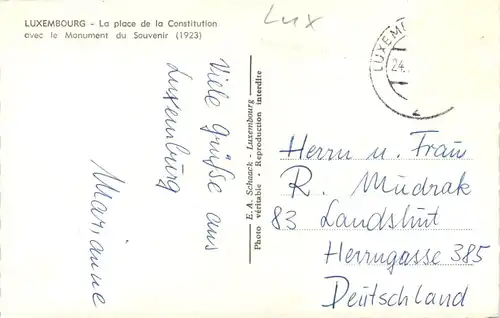 LUXEMBOURG - La place de la Constitution
avec le Monument du Souvenir (1923)
Lux
LUXEM
24.
2
Viele Grüße aus
Luxemburg
Marianne
E. A. Schaack - Luxembourg
Photo véritable • Reproduction interdite
Herrn u. Frau
R. Mudrak
83 Landshut
Herrngasse 385
Deutschland